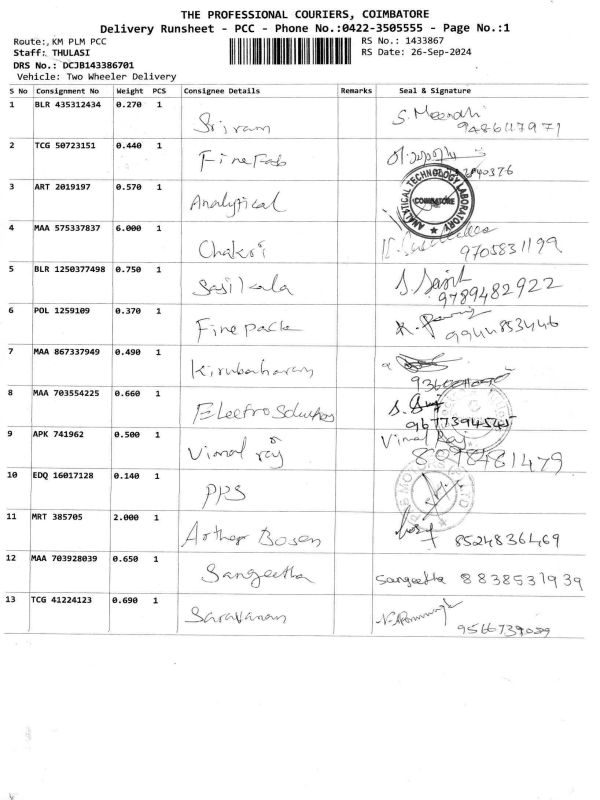 THE PROFESSIONAL COURIERS, COIMBATORE
Delivery Runsheet - PCC - Phone No.:0422-3505555 - Page No.:1
Route:, KM PLM PCC
RS No.: 1433867
Staff: THULASI
RS Date: 26-Sep-2024
DRS No.: DCJB143386701
Vehicle: Two Wheeler Delivery
S No Consignment No Weight PCS Consignee Details Remarks Seal & Signature
1 BLR 435312434 0.270 1 Sriram S. Meendhi
9486117971
2 TCG 50723151 0.440 1 FineFab
3 ART 2019197 0.570 1 Analytical
ANALYTICAL TECHNOLOGY LABORATORY
COIMBATORE
4 MAA 575337837 6.000 1 Chakri
9705831199
5 BLR 1250377498 0.750 1 Sasikala
9789482922
6 POL 1259109 0.370 1 Finepack
9944853446
7 MAA 867337949 0.490 1 Kirubaharan
8 MAA 703554225 0.660 1 Electro Solutions
9677394545
9 APK 741962 0.500 1 Vimal raj Vimal Raj
8098481479
10 EDQ 16017128 0.140 1 PPS
11 MRT 385705 2.000 1 Arther Bosen
8524836469
12 MAA 703928039 0.650 1 Sangeetha Sangeetha 8838531939
13 TCG 41224123 0.690 1 Saravanan
9566739059